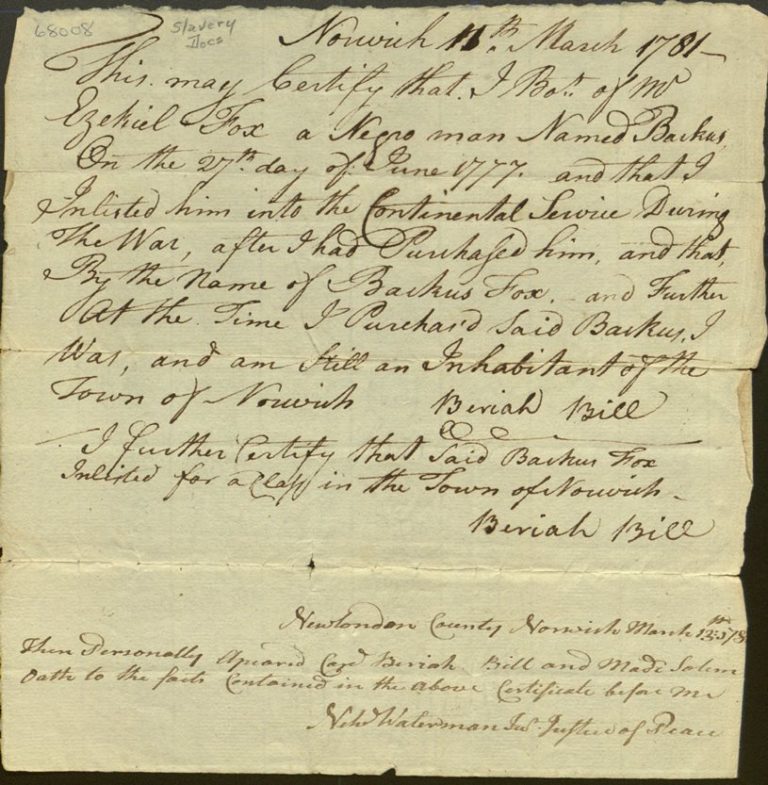 68008
Slavery
Docs
Norwich 11th March 1781
This may Certify that I Bot. of Mr
Ezekiel Fox a Negro man Named Backus
On the 27th day of June 1777. and that I
Inlisted him into the Continental Service During
The War, after I had Purchased him, and that,
By the Name of Backus Fox. and Further
At the Time I Purchasd Said Backus, I
Was, and am Still an Inhabitant of the
Town of Norwich Beriah Bill
I further Certify that Said Backus Fox
Inlisted for a Class in the Town of Norwich
Beriah Bill
New London County Norwich March 12th 178
Then Personally Apeared Capt Beriah Bill and Made Solem
Oath to the facts Contained in the above Certificate before me
Nehd Waterman Jur. Justice of Peace